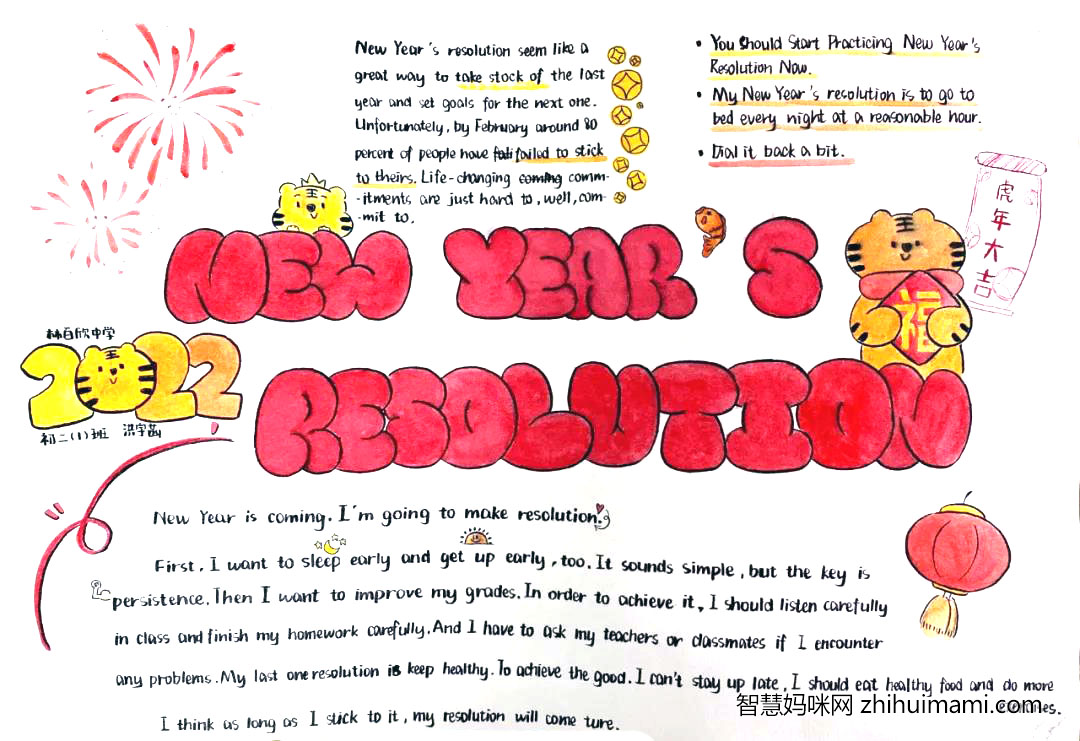 New Year's resolution seem like a
great way to take stock of the last
year and set goals for the next one.
Unfortunately, by February around 80
percent of people have fali failed to stick
to theirs. Life-changing coming comm-
-itments are just hard to, well, com-
-mit to.
• You Should Start Practicing New Year's
Resolution Now.
• My New Year's resolution is to go to
bed every night at a reasonable hour.
• Dial it back a bit.
虎年大吉
NEW YEAR'S
福
林百欣中学
2022
初二(1)班 洪宇茜
RESOLUTION
New Year is coming. I'm going to make resolution.
First, I want to sleep early and get up early, too. It sounds simple, but the key is
persistence. Then I want to improve my grades. In order to achieve it, I should listen carefully
in class and finish my homework carefully. And I have to ask my teachers or classmates if I encounter
any problems. My last one resolution is keep healthy. To achieve the good. I can't stay up late, I should eat healthy food and do more
I think as long as I stick to it, my resolution will come ture.
智慧妈咪网 zhihuimami.com